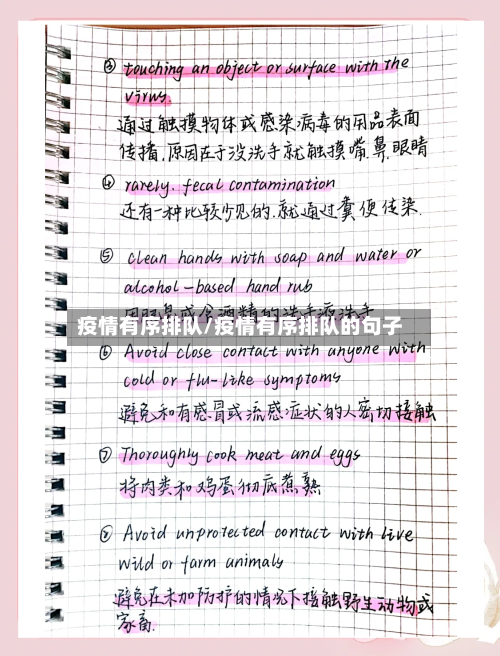 ③ touching an object or surface with the
virus.
通过触摸物体或感染病毒的用品表面
传播,原因在于没洗手就触摸嘴.鼻.眼睛
④ rarely. fecal contamination
还有一种比较少见的.就通过粪便传染.
⑤ clean hands with soap and water or
alcohol-based hand rub
用肥皂或含酒精的洗手液洗手
疫情有序排队/疫情有序排队的句子
⑥ Avoid close contact with anyone with
cold or flu-like symptoms
避免和有感冒或流感症状的人密切接触
⑦ Thoroughly cook meat and eggs
将肉类和鸡蛋彻底煮熟
⑧ Avoid unprotected contact with live
wild or farm animals
避免在未加防护的情况下接触野生动物或
家畜.